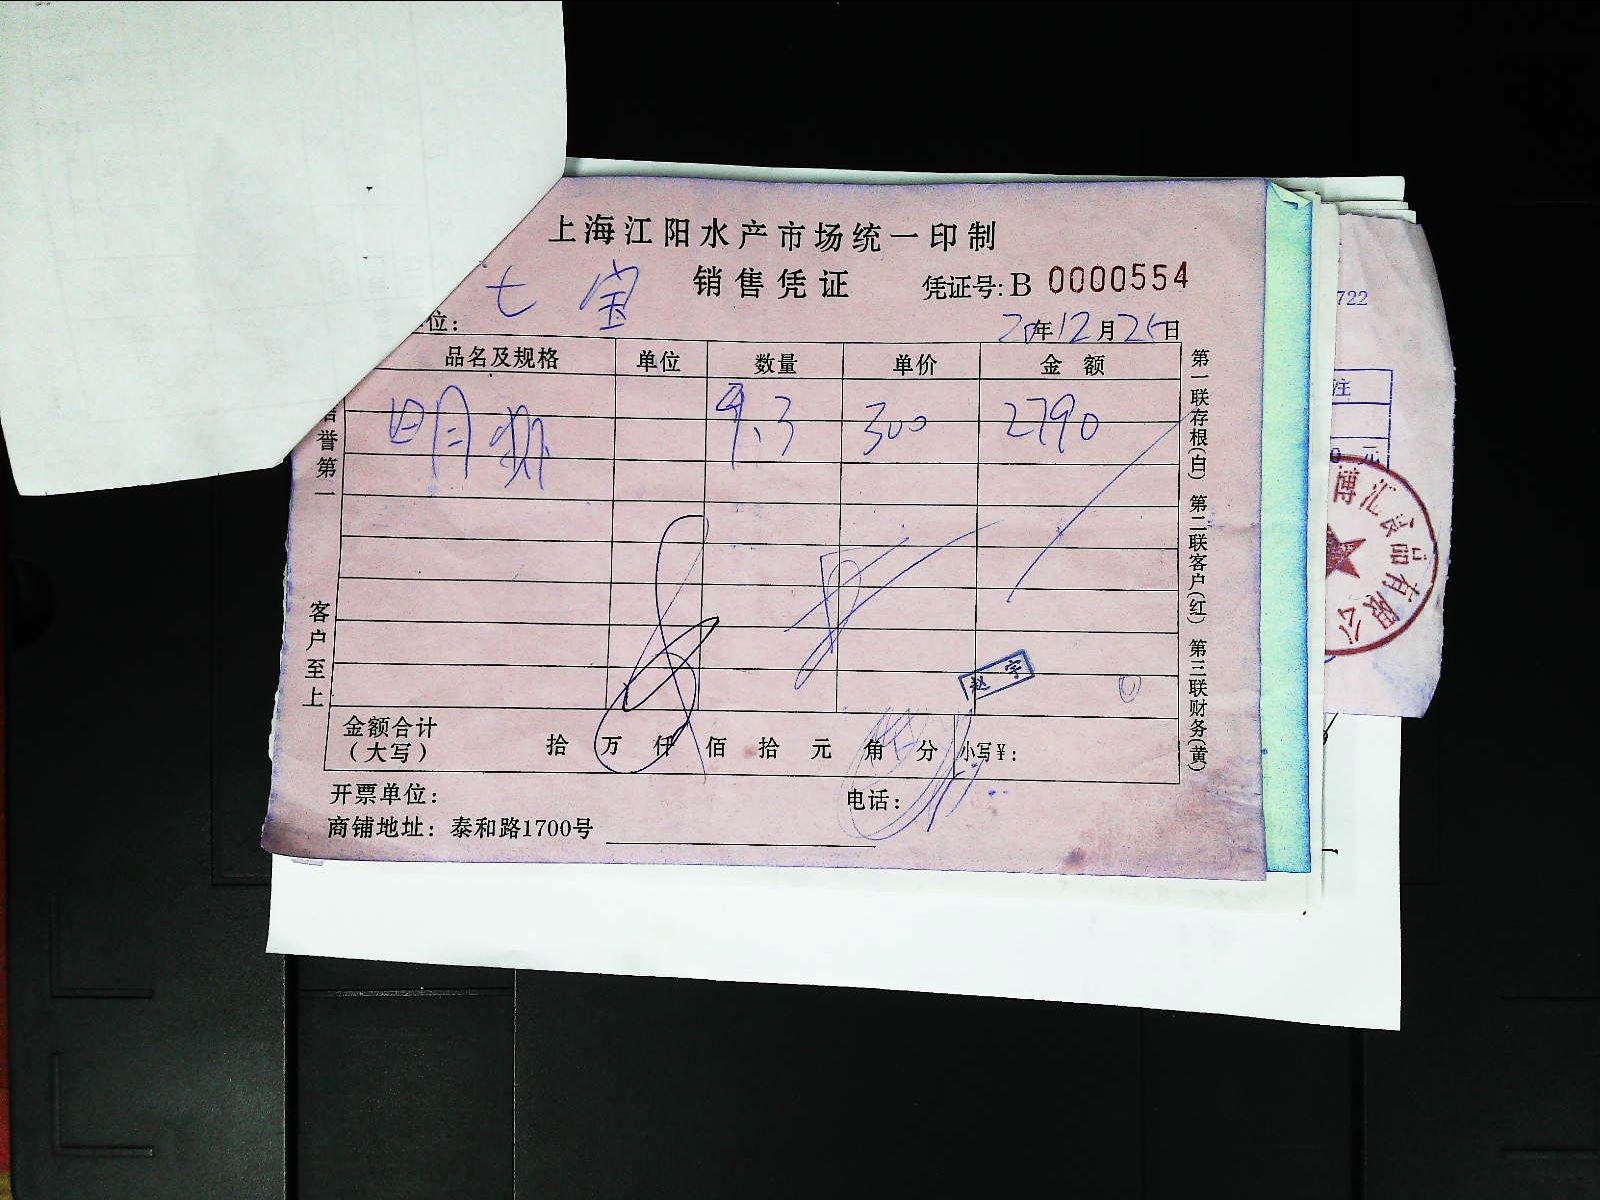 上海江阳水产市场统一印制
七宝 销售凭证 凭证号: B 0000554
位:
20年12月25日
品名及规格 单位 数量 单价 金额
明虾 9.3 300 2790
誉第一
客户至上
金额合计
(大写) 拾 万 仟 佰 拾 元 角 分 小写¥:
开票单位: 电话:
商铺地址: 泰和路1700号
第一联存根(白) 第二联客户(红) 第三联财务(黄)
赵宇
722
注
0 元
博汇食品有限公